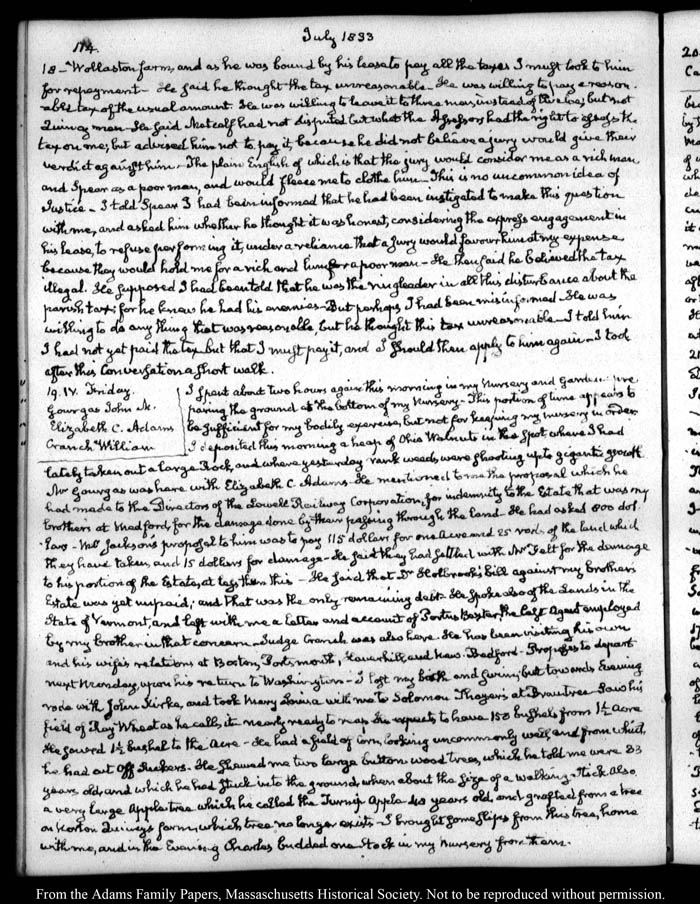 174.
July 1833
18 — Wollaston farm, and as he was bound by his lease to pay all the taxes I must look to him
for repayment — He said he thought the tax unreasonable — He was willing to pay a reason-
able tax of the usual amount. He was willing to leave it to three men, instead of twelve, but not
Quincy men — He said Metcalf had not disputed but what the Assessors had the right to assess the
tax on me; but advised him not to pay it, because he did not believe a jury would give their
verdict against him — The plain English of which is that the jury would consider me as a rich man
and Spear as a poor man, and would fleece me to clothe him — This is no uncommon idea of
Justice — I told Spear I had been informed that he had been instigated to make this question
with me, and asked him whether he thought it was honest, considering the express engagement in
his lease, to refuse performing it, under a reliance that a jury would favour him at my expense
because they would hold me for a rich and him for a poor man — He then said he believed the tax
illegal. He supposed I had been told that he was the ringleader in all this disturbance about the
parish tax; for he knew he had his enemies — But perhaps I had been misinformed — He was
willing to do any thing that was reasonable, but he thought this tax unreasonable — I told him
I had not yet paid the tax but that I must pay it, and I should then apply to him again — I took
after this Conversation a short walk.
19. IV. Friday.
Gourgas John M.
Elizabeth C. Adams
Cranch William
I spent about two hours again this morning in my Nursery and Garden pre
paring the ground at the bottom of my Nursery — This portion of time appears to
be sufficient for my bodily exercise, but not for keeping my nursery in order
I deposited this morning a heap of Ohio Walnuts in the spot where I had
lately taken out a large Rock, and where yesterday rank weeds were shooting up to gigantic growth
Mr Gourgas was here with Elizabeth C. Adams. He mentioned to me the proposal which he
had made to the Directors of the Lowell Railway Corporation, for indemnity to the Estate that was my
brothers at Medford, for the damage done by their passing through the land. He had asked 800 dol-
lars — Mr Jackson's proposal to him was to pay 115 dollars for one Acre and 25 rods of the land which
they have taken, and 15 dollars for damage — He said they had settled with Mr Felt for the damage
to his portion of the Estate, at less than this — He said that Dr Holbrook's Bill against my brother's
Estate was yet unpaid; and that was the only remaining debt. He spoke also of the Lands in the
State of Vermont, and left with me a letter and account of Portus Baxter, the last Agent employed
by my brother in that concern — Judge Cranch was also here. He has been visiting his own
and his wife's relations at Boston, Portsmouth, Haverhill, and New-Bedford — Proposes to depart
next Monday, upon his return to Washington — I left my bath and swim; but towards Evening
rode with John Kirke, and took Mary Louisa with me to Solomon Thayer's at Braintree — Saw his
field of Wheat as he calls it nearly ready to reap. He expects to have 150 bushels from 1½ Acre
He sowed 1½ bushel to the Acre — He had a field of corn, looking uncommonly well, and from which
he had cut off suckers. He shewed me two large button wood trees, which he told me were 33
years old, and which he had stuck into the ground, when about the size of a walking stick. Also
a very large Appletree which he called the Turnip Apple 40 years old, and grafted from a tree
on Norton Quincy's farm, which tree no longer exists — I brought some slips from this tree, home
with me, and in the Evening Charles budded one stock in my Nursery from them.
From the Adams Family Papers, Massachusetts Historical Society. Not to be reproduced without permission.